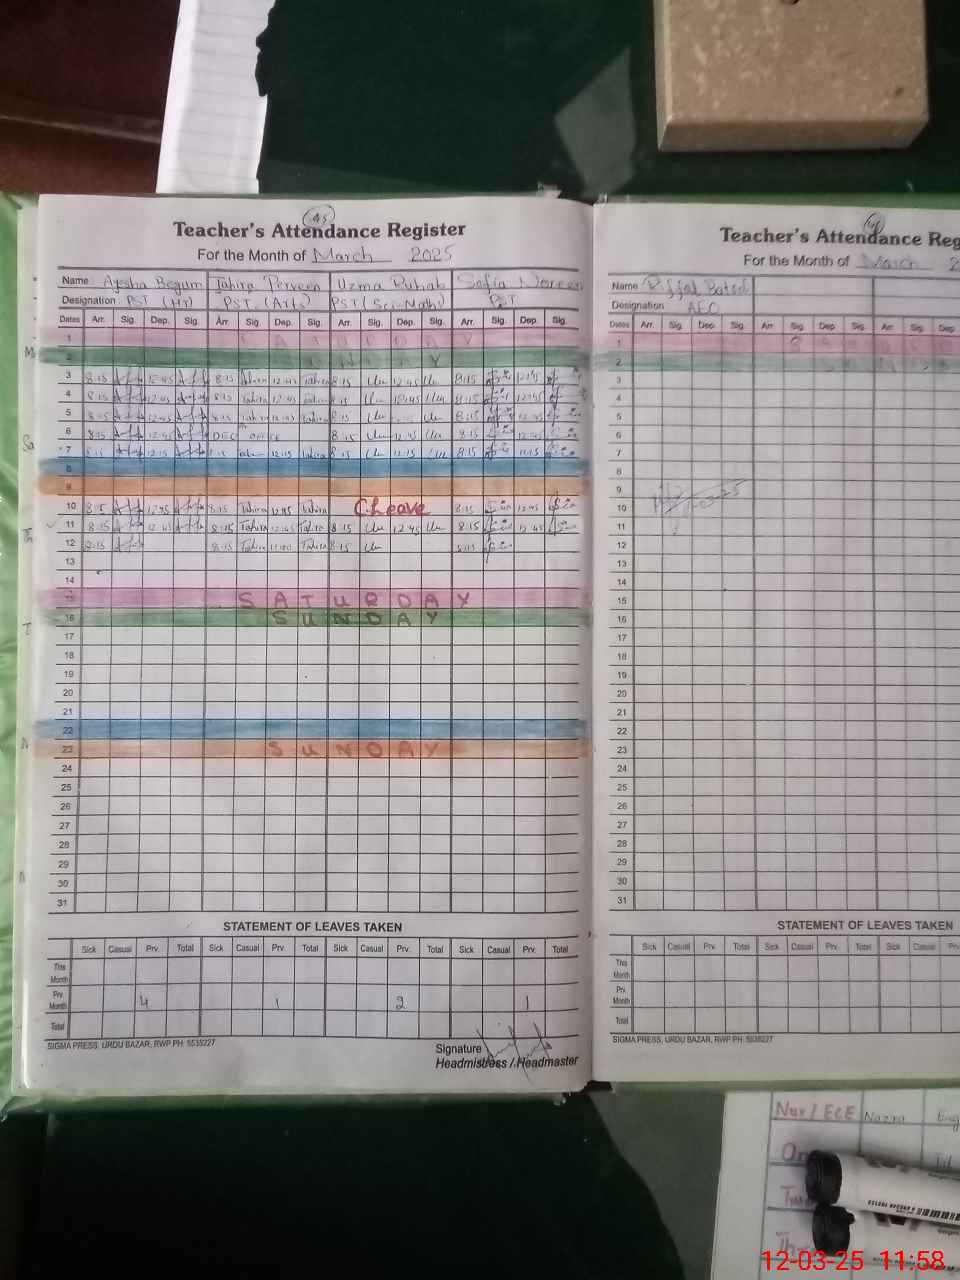 Teacher's Attendance Register
For the Month of March 2025
Name Ayesha Begum Tahira Perveen Uzma Rubab Safia Noreen
Designation PST (Ht) PST (Arts) PST (Sci-Math) PST
Dates Arr. Sig. Dep. Sig. Arr. Sig. Dep. Sig. Arr. Sig. Dep. Sig. Arr. Sig. Dep. Sig.
1 SATURDAY
2 SUNDAY
3 8:15 12:45 8:15 Tahira 12:45 Tahira 8:15 12:45 8:15 12:45
4 8:15 12:45 8:15 Tahira 12:45 Tahira 8:15 12:45 8:15 12:45
5 8:15 12:45 8:15 Tahira 12:45 Tahira 8:15 8:15 12:45
6 8:15 12:45 DEC OFFICE 8:15 12:45 8:15 12:45
7 8:15 12:15 8:15 12:15 Tahira 8:15 12:15 8:15 12:15
8
9
10 8:15 12:45 8:15 Tahira 12:45 Tahira C.leave 8:15 12:45
11 8:15 12:45 8:15 Tahira 12:45 Tahira 8:15 12:45 8:15 12:45
12 8:15 8:15 Tahira 11:00 Tahira 8:15 8:15
13
14
15 SATURDAY
16 SUNDAY
17
18
19
20
21
22
23 SUNDAY
24
25
26
27
28
29
30
31
STATEMENT OF LEAVES TAKEN
Sick Casual Prv. Total Sick Casual Prv. Total Sick Casual Prv. Total Sick Casual Prv. Total
This Month
Prv. Month 4 1 2 1
Total
SIGMA PRESS, URDU BAZAR, RWP PH: 5535227
Signature
Headmistress / Headmaster
Teacher's Attendance Reg
For the Month of March 2
Name
Designation AEO
Dates Arr. Sig. Dep. Sig. Arr. Sig. Dep. Sig. Arr. Sig. Dep.
1
2
3
4
5
6
7
8
9
10
11
12
13
14
15
16
17
18
19
20
21
22
23
24
25
26
27
28
29
30
31
STATEMENT OF LEAVES TAKEN
Sick Casual Prv. Total Sick Casual Prv. Total Sick Casual Prv.
This Month
Prv. Month
Total
SIGMA PRESS, URDU BAZAR, RWP PH: 5535227
Nur/ECE Nazra Eng
12-03-25 11:58